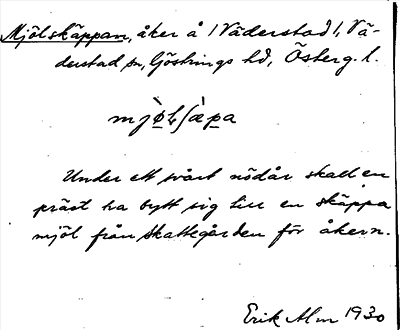 Mjölskäppan, åker å /Väderstad/, Vä-
derstad sn, Göstrings hd, Österg. l.
mjø̀lʃæ̀pa
Under ett svårt nödår skall en
präst ha bytt sig till en skäppa
mjöl från skattegården för åkern.
Erik Alm 1930